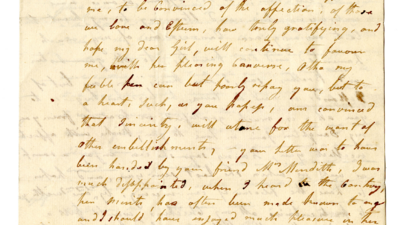 me, to be convinced of the affection, of those
we love and Esteem, how truly gratifying, and
hope my dear Girl, will continue to favour
me, with her pleasing converse, Tho my
feeble pen can but poorly repay you, but to
a heart, such, as you possess, am convinced
that Sincerity, will atone for the want of
other embellishments, - your letter was to have
been handed by your friend Mrs Meredith, I was
much disappointed, when I heard in the Country,
her merits, has often been made known to me
and I should, have enjoyed much pleasure in her